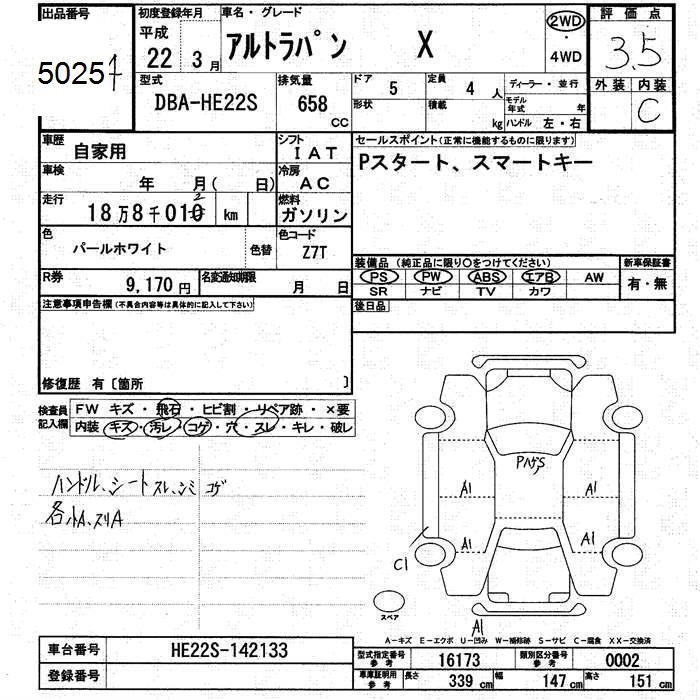 出品番号
5025
初度登録年月
平成
22 3月
車名・グレード
アルトラパン X
2WD
・
4WD
評価点
3.5
外装 内装
C
型式
DBA-HE22S
排気量
658
CC
ドア 5
定員 4 人
形状
積載
kg
ディーラー・並行
モデル年式 年
ハンドル 左・右
車歴
自家用
シフト
IAT
車検
年 月( 日)
冷房
AC
走行
18万8千010 km
燃料
ガソリン
色
パールホワイト
色替
色コード
Z7T
R券
9,170円
名変通知期限
月 日
セールスポイント(正常に機能するものに限ります)
Pスタート、スマートキー
装備品(純正品に限り○をつけてください)
PS PW ABS エアB AW
SR ナビ TV カワ
新車保証書
有・無
後日品
注意事項申告欄(不具合内容等は具体的に記入して下さい)
修復歴 有〔箇所 〕
検査員記入欄
FW キズ・飛石・ヒビ割・リペア跡・×要
内装 キズ・汚レ・コゲ・穴・スレ・キレ・破レ
ハンドル、シート スレ、シミ コゲ
各小A、スリA
PハゲS
A1
A1
A1
A1
C1
スペア
A1
A-キズ E-エクボ U-凹み W-補修跡 S-サビ C-腐食 XX-交換済
車台番号
HE22S-142133
登録番号
型式指定番号 参考
16173
類別区分番号 参考
0002
車庫証明用 参考
長さ 339 cm
幅 147 cm
高さ 151 cm